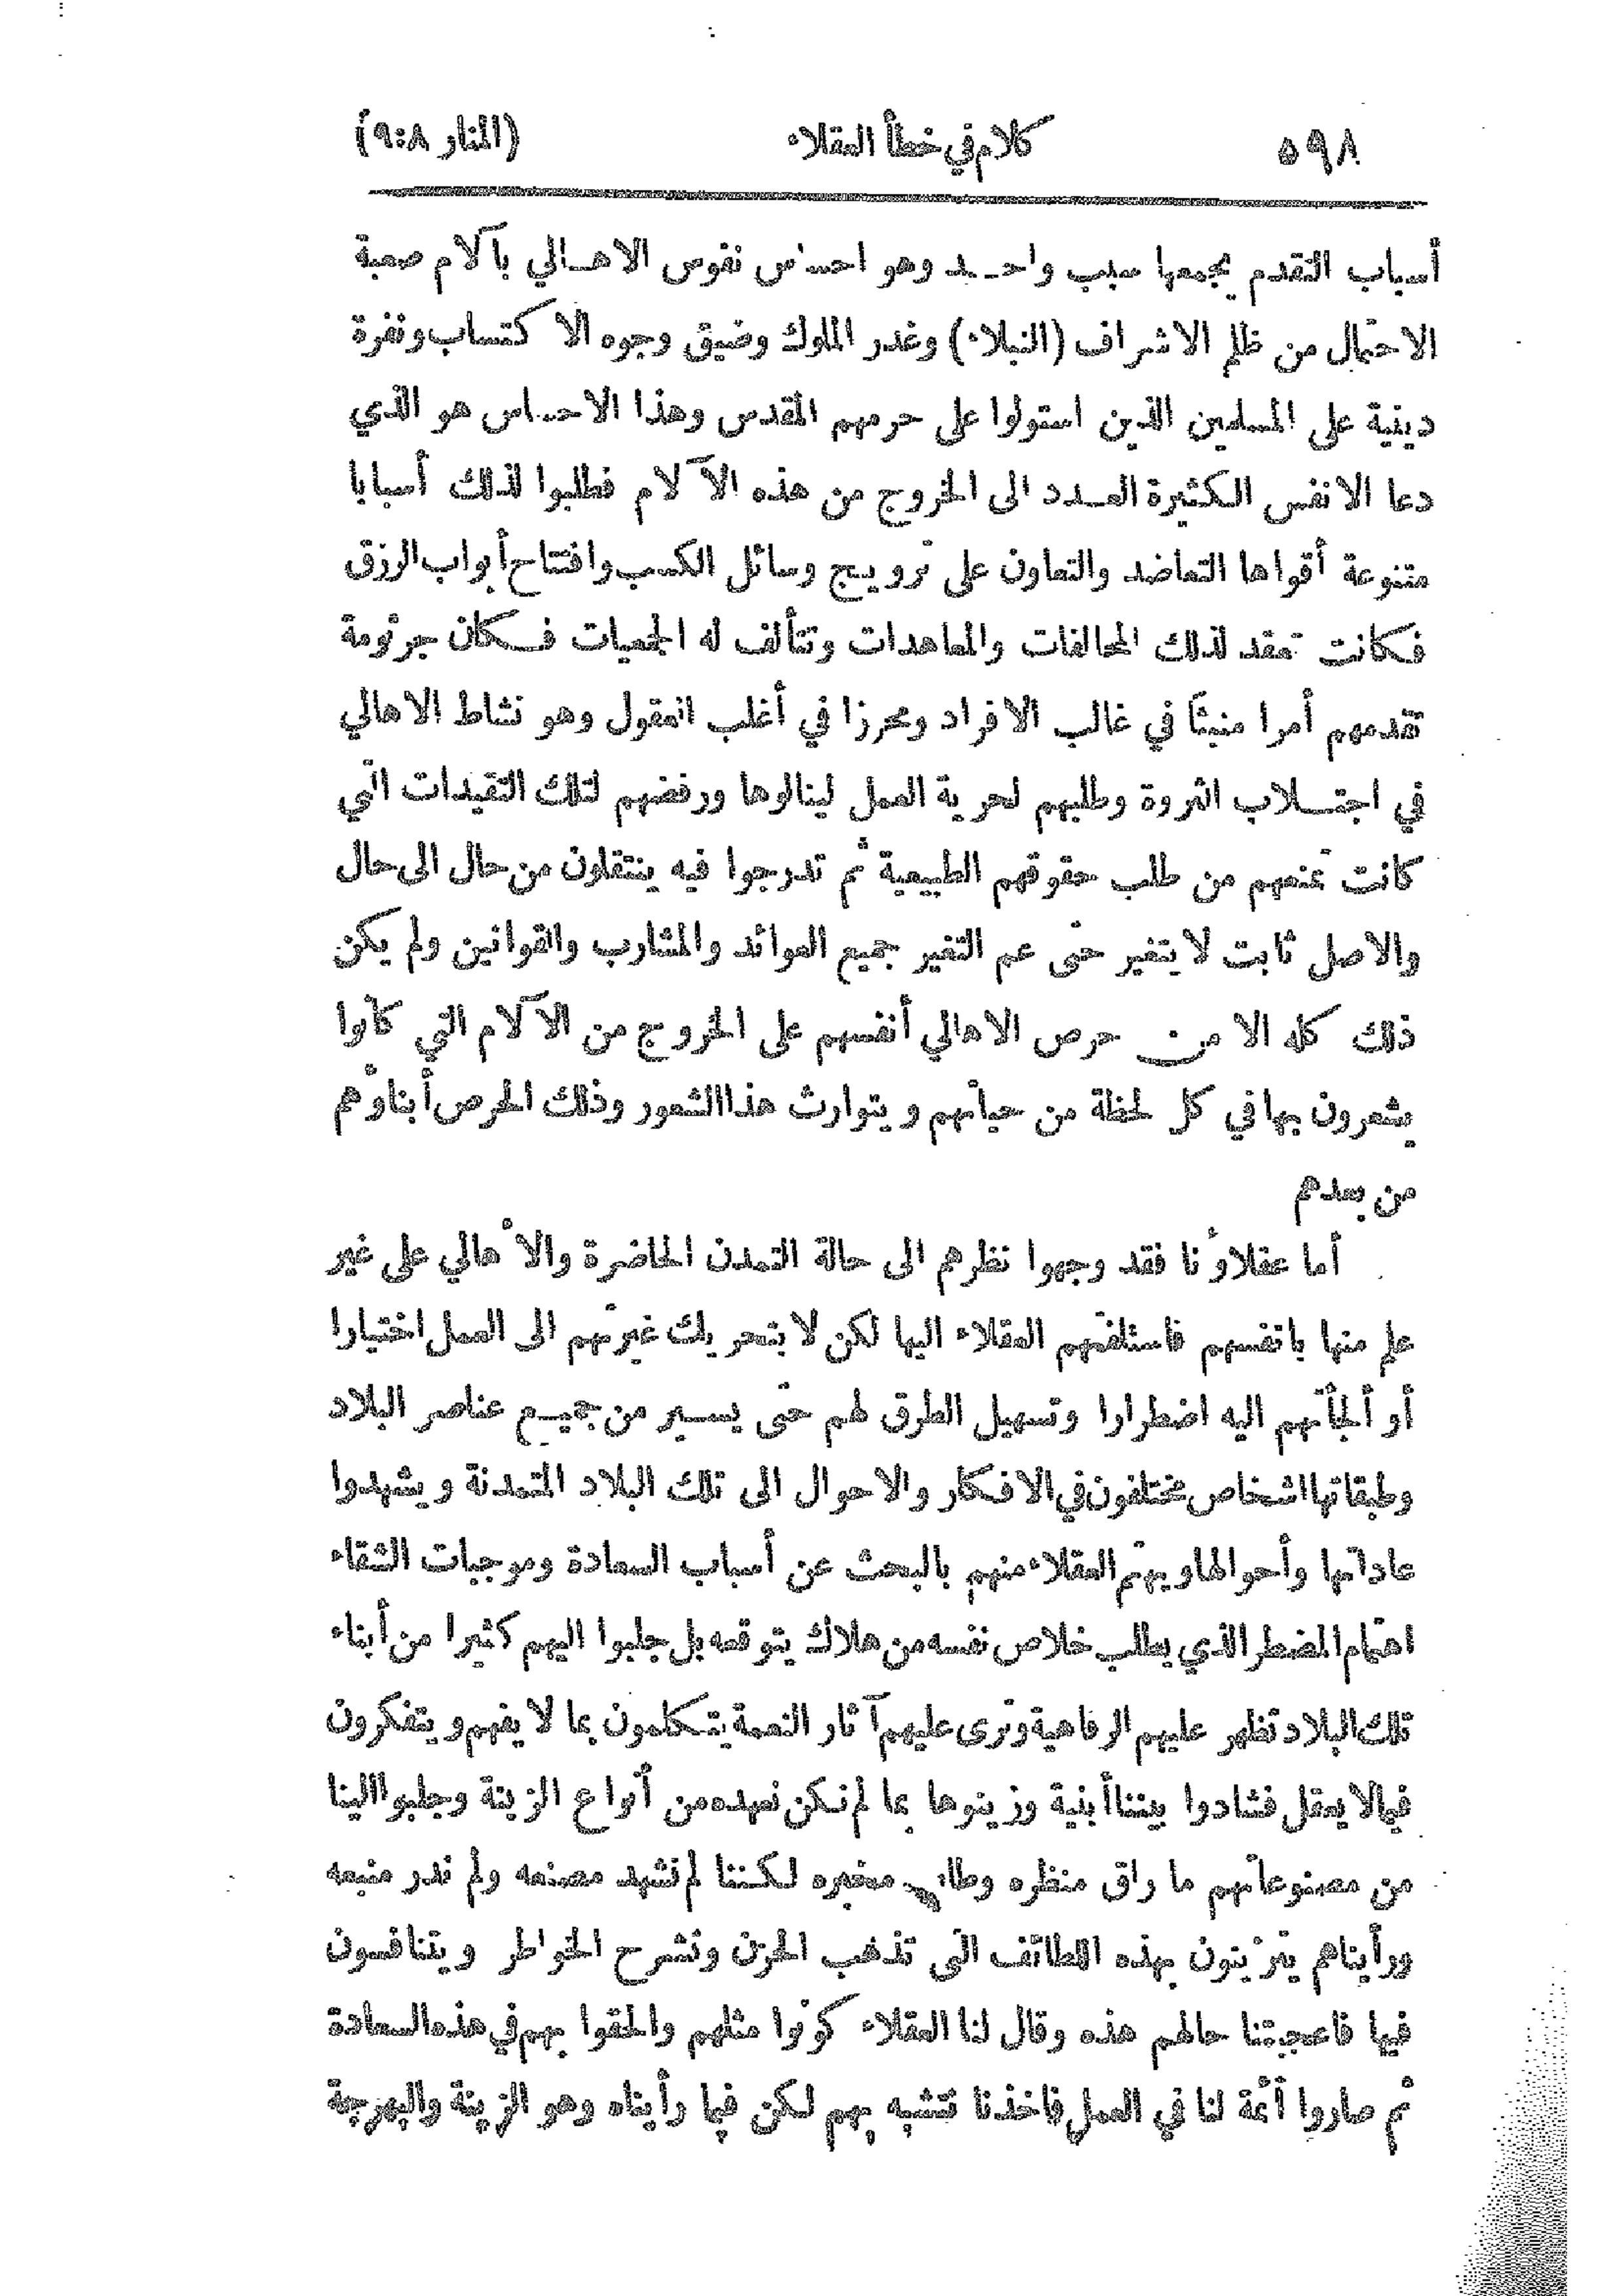 ٥٩٨ كلام في خطأ العقلاء (المنار ٩:٨)
أسباب التقدم يجمعها سبب واحد وهو احساس نفوس الاهالي بآلام صعبة
الاحتمال من ظلم الاشراف (النبلاء) وغدر الملوك وضيق وجوه الاكتساب ونفرة
دينية على المسلمين الذين استولوا على حرمهم المقدس وهذا الاحساس هو الذي
دعا الانفس الكثيرة العدد الى الخروج من هذه الآلام فطلبوا لذلك أسبابا
متنوعة أقواها التعاضد والتعاون على ترويج وسائل الكسب وافتتاح أبواب الرزق
فكانت تعقد لذلك المحالفات والمعاهدات وتتألف له الجمعيات فكان جرثومة
تقدمهم أمرا منبثا في غالب الافراد ومحرزا في أغلب العقول وهو نشاط الاهالي
في اجتلاب الثروة وطلبهم لحرية العمل لينالوها ورفضهم لتلك التقيدات التي
كانت تمنعهم من طلب حقوقهم الطبيعية ثم تدرجوا فيه ينتقلون من حال الى حال
والاصل ثابت لا يتغير حتى عم التغير جميع العوائد والمشارب والقوانين ولم يكن
ذلك كله الا من حرص الاهالي أنفسهم على الخروج من الآلام التي كانوا
يشعرون بها في كل لحظة من حياتهم ويتوارث هذا الشعور وذلك الحرص أبناؤهم
من بعدهم
أما عقلاؤنا فقد وجهوا نظرهم الى حالة التمدن الحاضرة والاهالي على غير
علم منها بانفسهم فاستلفتهم العقلاء اليها لكن لا بتحريك غيرتهم الى العمل اختيارا
أو ألجأتهم اليه اضطرارا وتسهيل الطرق لهم حتى يسير من جميع عناصر البلاد
وطبقاتها اشخاص مختلفون في الافكار والاحوال الى تلك البلاد المتمدنة ويشهدوا
عاداتها وأحوالها ويهتم العقلاء منهم بالبحث عن أسباب السعادة وموجبات الشقاء
اهتمام المضطر الذي يطلب خلاص نفسه من هلاك يتوقعه بل جلبوا اليهم كثيرا من أبناء
تلك البلاد تظهر عليهم الرفاهية وترى عليهم آثار النعمة يتكلمون بما لا يفهم ويتفكرون
فيما لا يعقل فشادوا بيننا أبنية وزينوها بما لم نكن نعهده من أنواع الزينة وجلبوا الينا
من مصنوعاتهم ما راق منظره وطاب مخبره لكننا لم نشهد مصنعه ولم ندر منبعه
ورأيناهم يتزينون بهذه اللطائف التي تذهب الحزن وتشرح الخواطر ويتنافسون
فيها فاعجبتنا حالهم هذه وقال لنا العقلاء كونوا مثلهم والحقوا بهم في هذه السعادة
ثم صاروا أئمة لنا في العمل فاخذنا نتشبه بهم لكن فيما رأيناه وهو الزينة والبهرجة